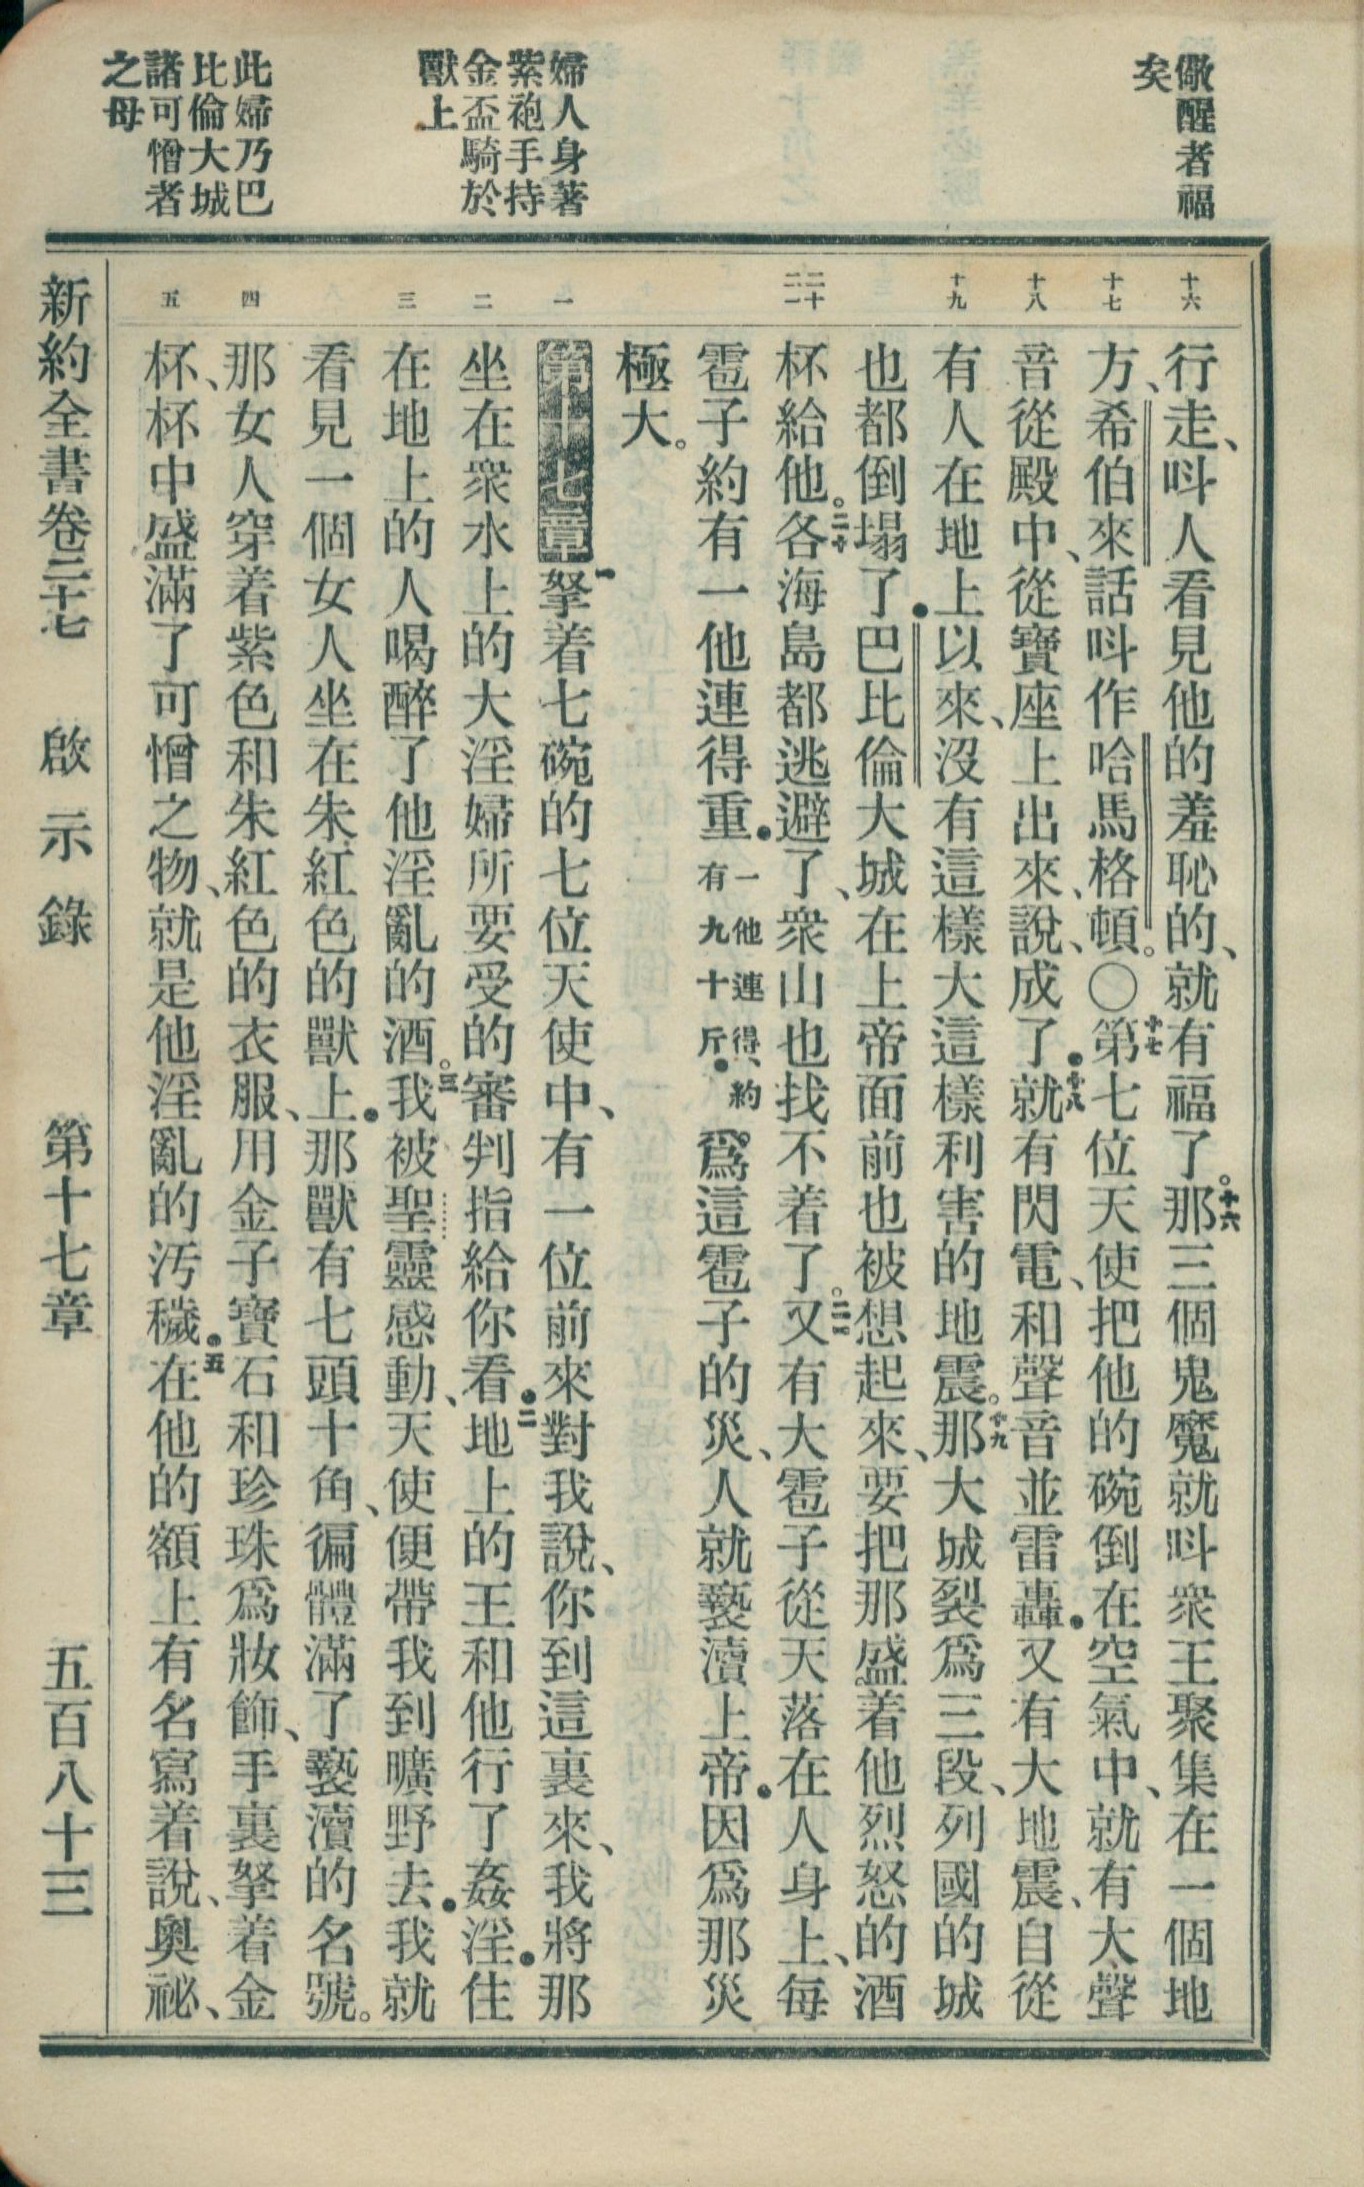 儆醒者福
矣
婦人身著
紫袍手持
金盃騎於
獸上
此婦乃巴
比倫大城
諸可憎者
之母
十六
十七
十八
十九
二十
二一
一
二
三
四
五
行走、呌人看見他的羞恥的、就有福了。十六那三個鬼魔就呌衆王聚集在一個地
方、希伯來話呌作哈馬格頓。〇十七第七位天使把他的碗倒在空氣中、就有大聲
音從殿中、從寶座上出來、說、成了．十八就有閃電、和聲音並雷轟．又有大地震、自從
有人在地上以來、沒有這樣大這樣利害的地震。十九那大城裂爲三段、列國的城
也都倒塌了．巴比倫大城在上帝面前也被想起來、要把那盛着他烈怒的酒
杯給他。二十各海島都逃避了、衆山也找不着了。二一又有大雹子從天落在人身上、每
雹子約有一他連得重．一他連得、約有九十斤．爲這雹子的災、人就褻瀆上帝．因爲那災
極大。
第十七章 一拏着七碗的七位天使中、有一位前來對我說、你到這裏來、我將那
坐在衆水上的大淫婦所要受的審判指給你看．二地上的王和他行了姦淫．住
在地上的人喝醉了他淫亂的酒。三我被聖靈感動、天使便帶我到曠野去．我就
看見一個女人坐在朱紅色的獸上．那獸有七頭十角、徧體滿了褻瀆的名號。
那女人穿着紫色和朱紅色的衣服、用金子寶石和珍珠爲妝飾、手裏拏着金
杯、杯中盛滿了可憎之物、就是他淫亂的汚穢．五在他的額上有名寫着說、奧祕、
新約全書卷二十七 啟示錄 第十七章 五百八十三